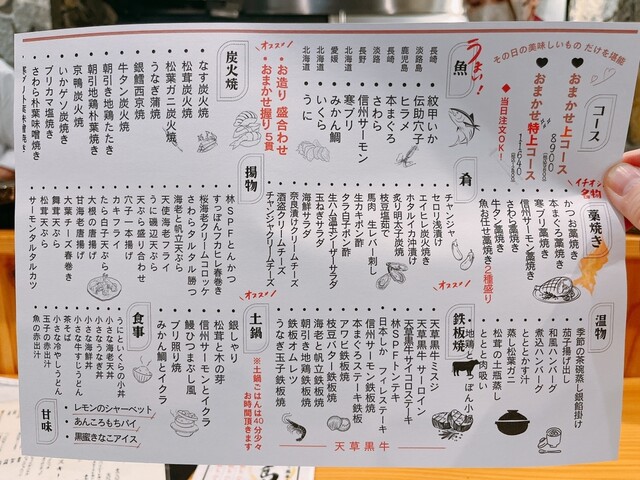 その日の美味しいもの だけを堪能
コース
おまかせ上コース
8900
おまかせ特上コース
当日注文OK!
うまい!
魚
長崎 紋甲いか
淡路島 伝助穴子
鹿児島 ヒラメ
長崎 本まぐろ
淡路 さわら
長野 信州サーモン
北海道 寒ブリ
愛媛 みかん鯛
北海道 いくら
北海道 うに
オススメ!
お造り 盛合わせ
おまかせ握り5貫
炭火焼
なす炭火焼
松茸炭火焼
松葉ガニ炭火焼
うなぎ蒲焼
銀鱈西京焼
牛タン炭火焼
朝引き地鶏たたき
朝引地鶏朴葉焼き
京鴨炭火焼
いかゲソ炭焼き
ブリカマ塩焼き
さわら朴葉味噌焼き
イチオシ名物
藁焼き
かつお藁焼き
本まぐろ藁焼き
寒ブリ藁焼き
信州サーモン藁焼き
さわら藁焼き
牛タン藁焼き
魚お任せ藁焼き2種盛り
肴
チャンジャ
セロリ浅漬け
エイヒレ炭火焼き
ホタルイカ沖漬け
炙り明太子炭焼
枝豆塩茹で
馬肉 生レバー刺し
生カキポン酢
タラ白子ポン酢
生ハム温玉シーザーサラダ
海鮮サラダ
玉ねぎサラダ
奈良漬クリームチーズ
酒盗クリームチーズ
チャンジャクリームチーズ
オススメ!
揚物
林SPFとんかつ
すっぽんフカヒレ春巻き
桜海老クリームコロッケ
さわらタルタル勝つ
海老と帆立天ぷら
天使海老フライ
うに磯辺天ぷら
天ぷら盛り合わせ
穴子一本揚げ
カキフライ
たら白子天ぷら
大根の唐揚げ
甘海老唐揚げ
大葉チーズ春巻き
舞茸天ぷら
松茸天ぷら
サーモンタルタルカツ
温物
季節の茶碗蒸し銀餡掛け
茄子揚げ出し
和風ハンバーグ
煮込ハンバーグ
ととかす汁
蒸し松葉ガニ
松茸の土瓶蒸し
とと肉吸い
オススメ!
鉄板焼
天草黒牛ミスジ
天草黒牛サーロイン
天草黒牛サイコロステーキ
林SPFトンテキ
日本しか フィレステーキ
信州サーモン鉄板焼
本まぐろステーキ鉄板
アワビ鉄板焼
枝豆バター鉄板焼
海老と帆立鉄板焼
朝引き地鶏鉄板焼
鉄板オムレツ
うなぎ玉子鉄板焼
天草黒牛
オススメ!
土鍋
※土鍋ごはんは40分少々お時間頂きます
銀しゃり
松茸と木の芽
信州サーモンとイクラ
鰻ひつまぶし風
ブリ照り焼
みかん鯛とイクラ
食事
うにといくらの小丼
小さな海老天丼
小さな海鮮丼
茶そば
小さな牛すじうどん
小さな冷やしうどん
玉子の赤出汁
魚の赤出汁
甘味
レモンのシャーベット
あんころもちパイ
黒蜜きなこアイス